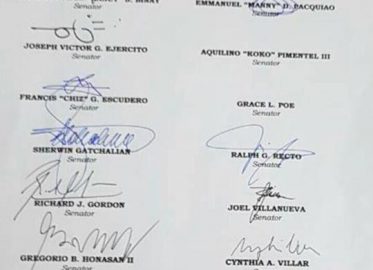 BINAY
Senator
EMMANUEL "MANNY" D. PACQUIAO
Senator
JOSEPH VICTOR G. EJERCITO
Senator
AQUILINO "KOKO" PIMENTEL III
Senator
FRANCIS "CHIZ" G. ESCUDERO
Senator
GRACE L. POE
Senator
SHERWIN GATCHALIAN
Senator
RALPH G. RECTO
Senator
RICHARD J. GORDON
Senator
JOEL VILLANUEVA
Senator
GREGORIO B. HONASAN II
Senator
CYNTHIA A. VILLAR
Senator